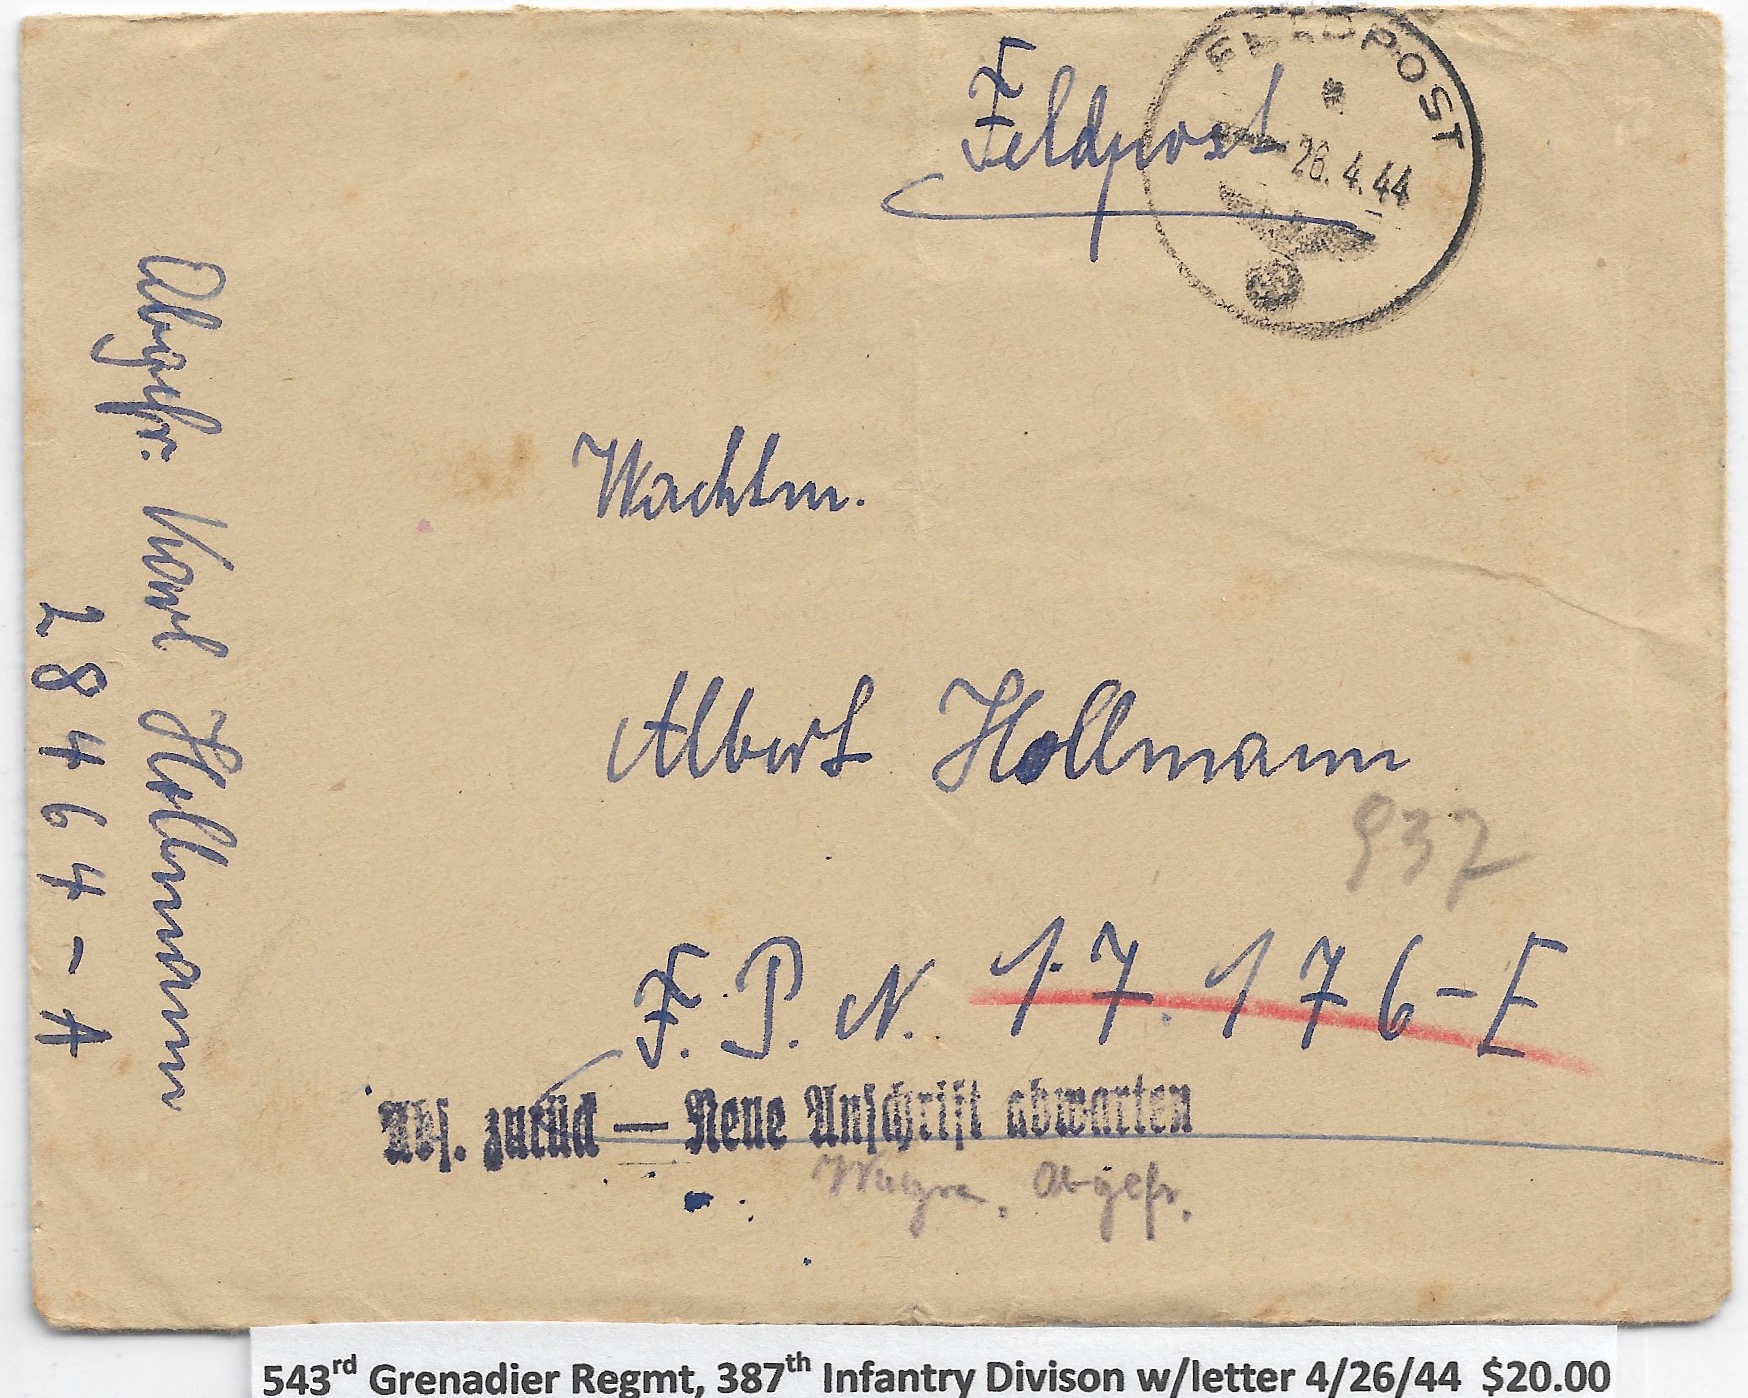 Feldpost
FELDPOST
26.4.44
Wachtm.
Albert Hollmann
937
F. P. N. 17.176-E
Abs. zurück — Neue Anschrift abwarten
Obgefr.
Obgefr. Karl Hollmann
28464-A
543rd Grenadier Regmt, 387th Infantry Divison w/letter 4/26/44 $20.00